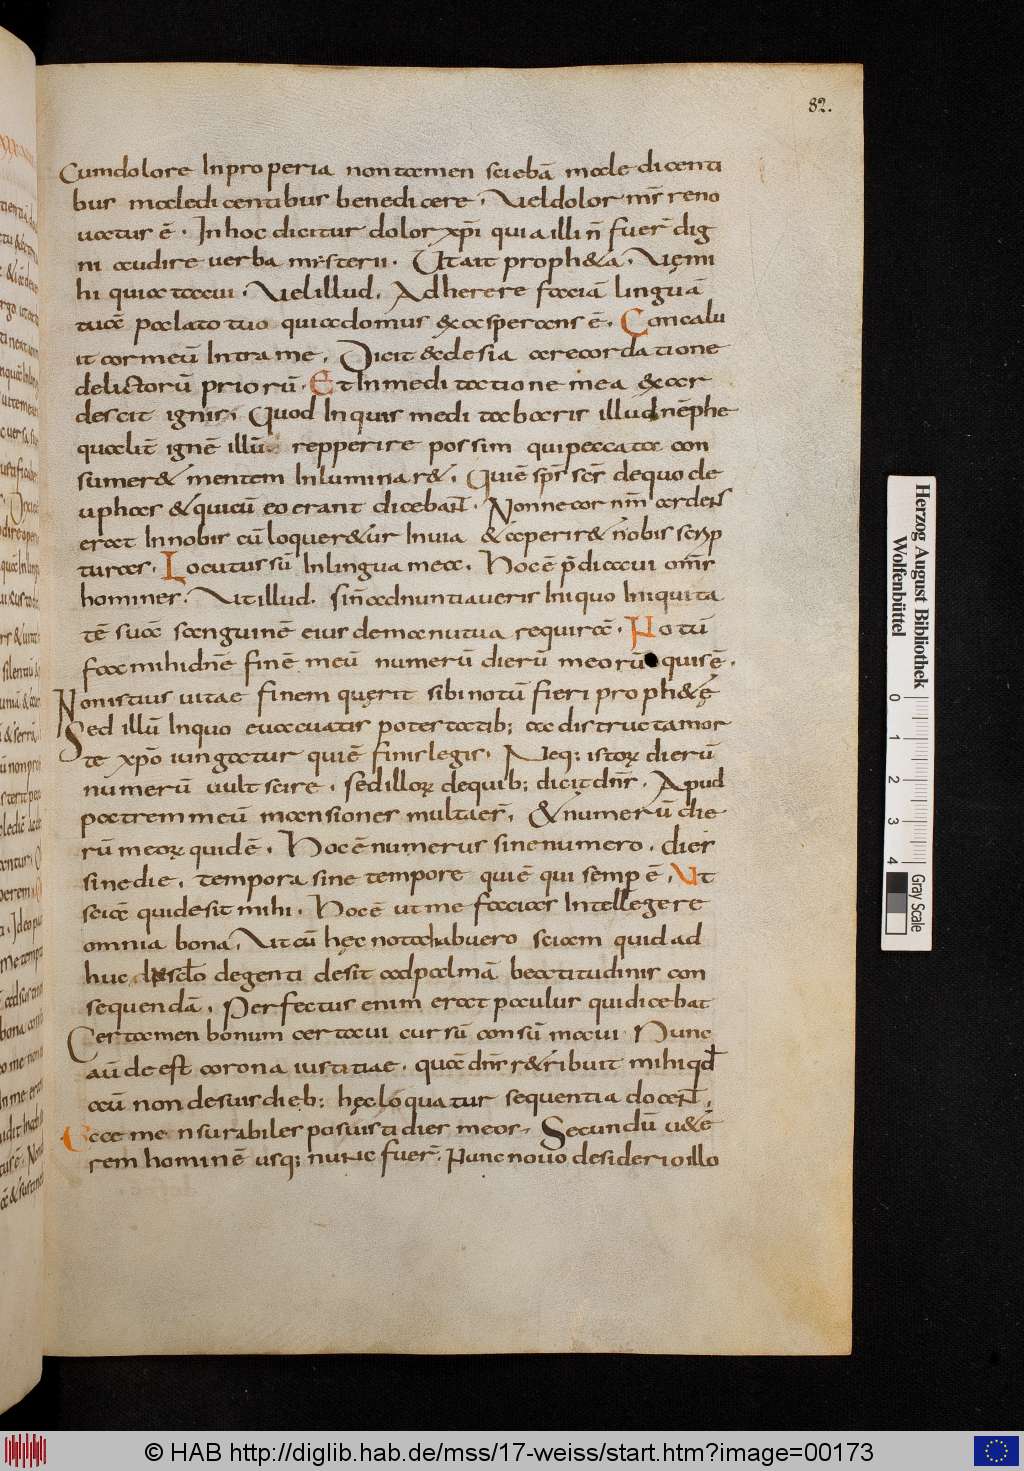 82.
Cum dolore Inproperia non tamen sciebā maledicenti
bus maledicentibus benedicere. Vel dolor mr̄ reno
uatur ē. In hoc dicitur dolor xp̄i quia illi n̄ fuer̄ dig
ni audire uerba mysterii. Ut ait proph&a. Vęmi
hi quia tacui. Vel illud. Adherere faciā linguā
tuā palato tuo quia domus &asperans ē. Concalu
it cor meū Intra me. Dicit ecclesia a recordatione
delictorū priorū. Et In meditatione mea &ar
descit ignis. Quod Inquis meditaberis illud nēphe
qualit̄ ignē illū repperire possim qui peccata con
sumer& mentem Inluminar&. Qui ē sp̄s sc̄s de quo cle
uphas & qui cū eo erant dicebant. Nonne cor nr̄m ardens
erat In nobis cū loquer&ur In uia & aperir& nobis scrip
turas. Locutus sū In lingua mea. Hoc ē p̄dicaui om̄s
homines. Ut illud. si n̄ adnuntiaueris Iniquo Iniquita
tē suā sanguinē eius de manu tua requirā. Notū
fac mihi dn̄e finē meū numerū dierū meorū quis ē.
Non istius uitae finem quęrit sibi notū fieri proph&ę
Sed illū In quo euacuatis potestatib; ac distructa mor
te xp̄o iungatur qui ē finis legis. Neq; istorꝝ dierū
numerū uult scire. sed illorꝝ de quib; dicit dn̄s. Apud
patrem meū mansiones multae s̄. & numerū die
rū meorꝝ quid ē. Hoc ē numerus sine numero. dies
sine die. tempora sine tempore qui ē qui semp̄ ē. Ut
sciā quid desit mihi. Hoc ē ut me facias Intellegere
omnia bona. Ut cū hęc nota habuero sciam quid ad
huc degenti desit ad palmā beatitudinis con
sequendā. Perfectus enim erat paulus qui dicebat
Certamen bonum certaui cursū consūmaui. Nunc
aū de est corona iustitiae. quā dn̄s r&ribuit mihi qđ
cū non desuis dieb; hęc loquatur sequentia docent.
Ecce mensurabiles posuisti dies meos. Secundū u&ē
rem hominē usq; nunc fuer̄. Nunc nouo desiderio illo
Herzog August Bibliothek
Wolfenbüttel
0 1 2 3 4
Gray Scale
© HAB http://diglib.hab.de/mss/17-weiss/start.htm?image=00173